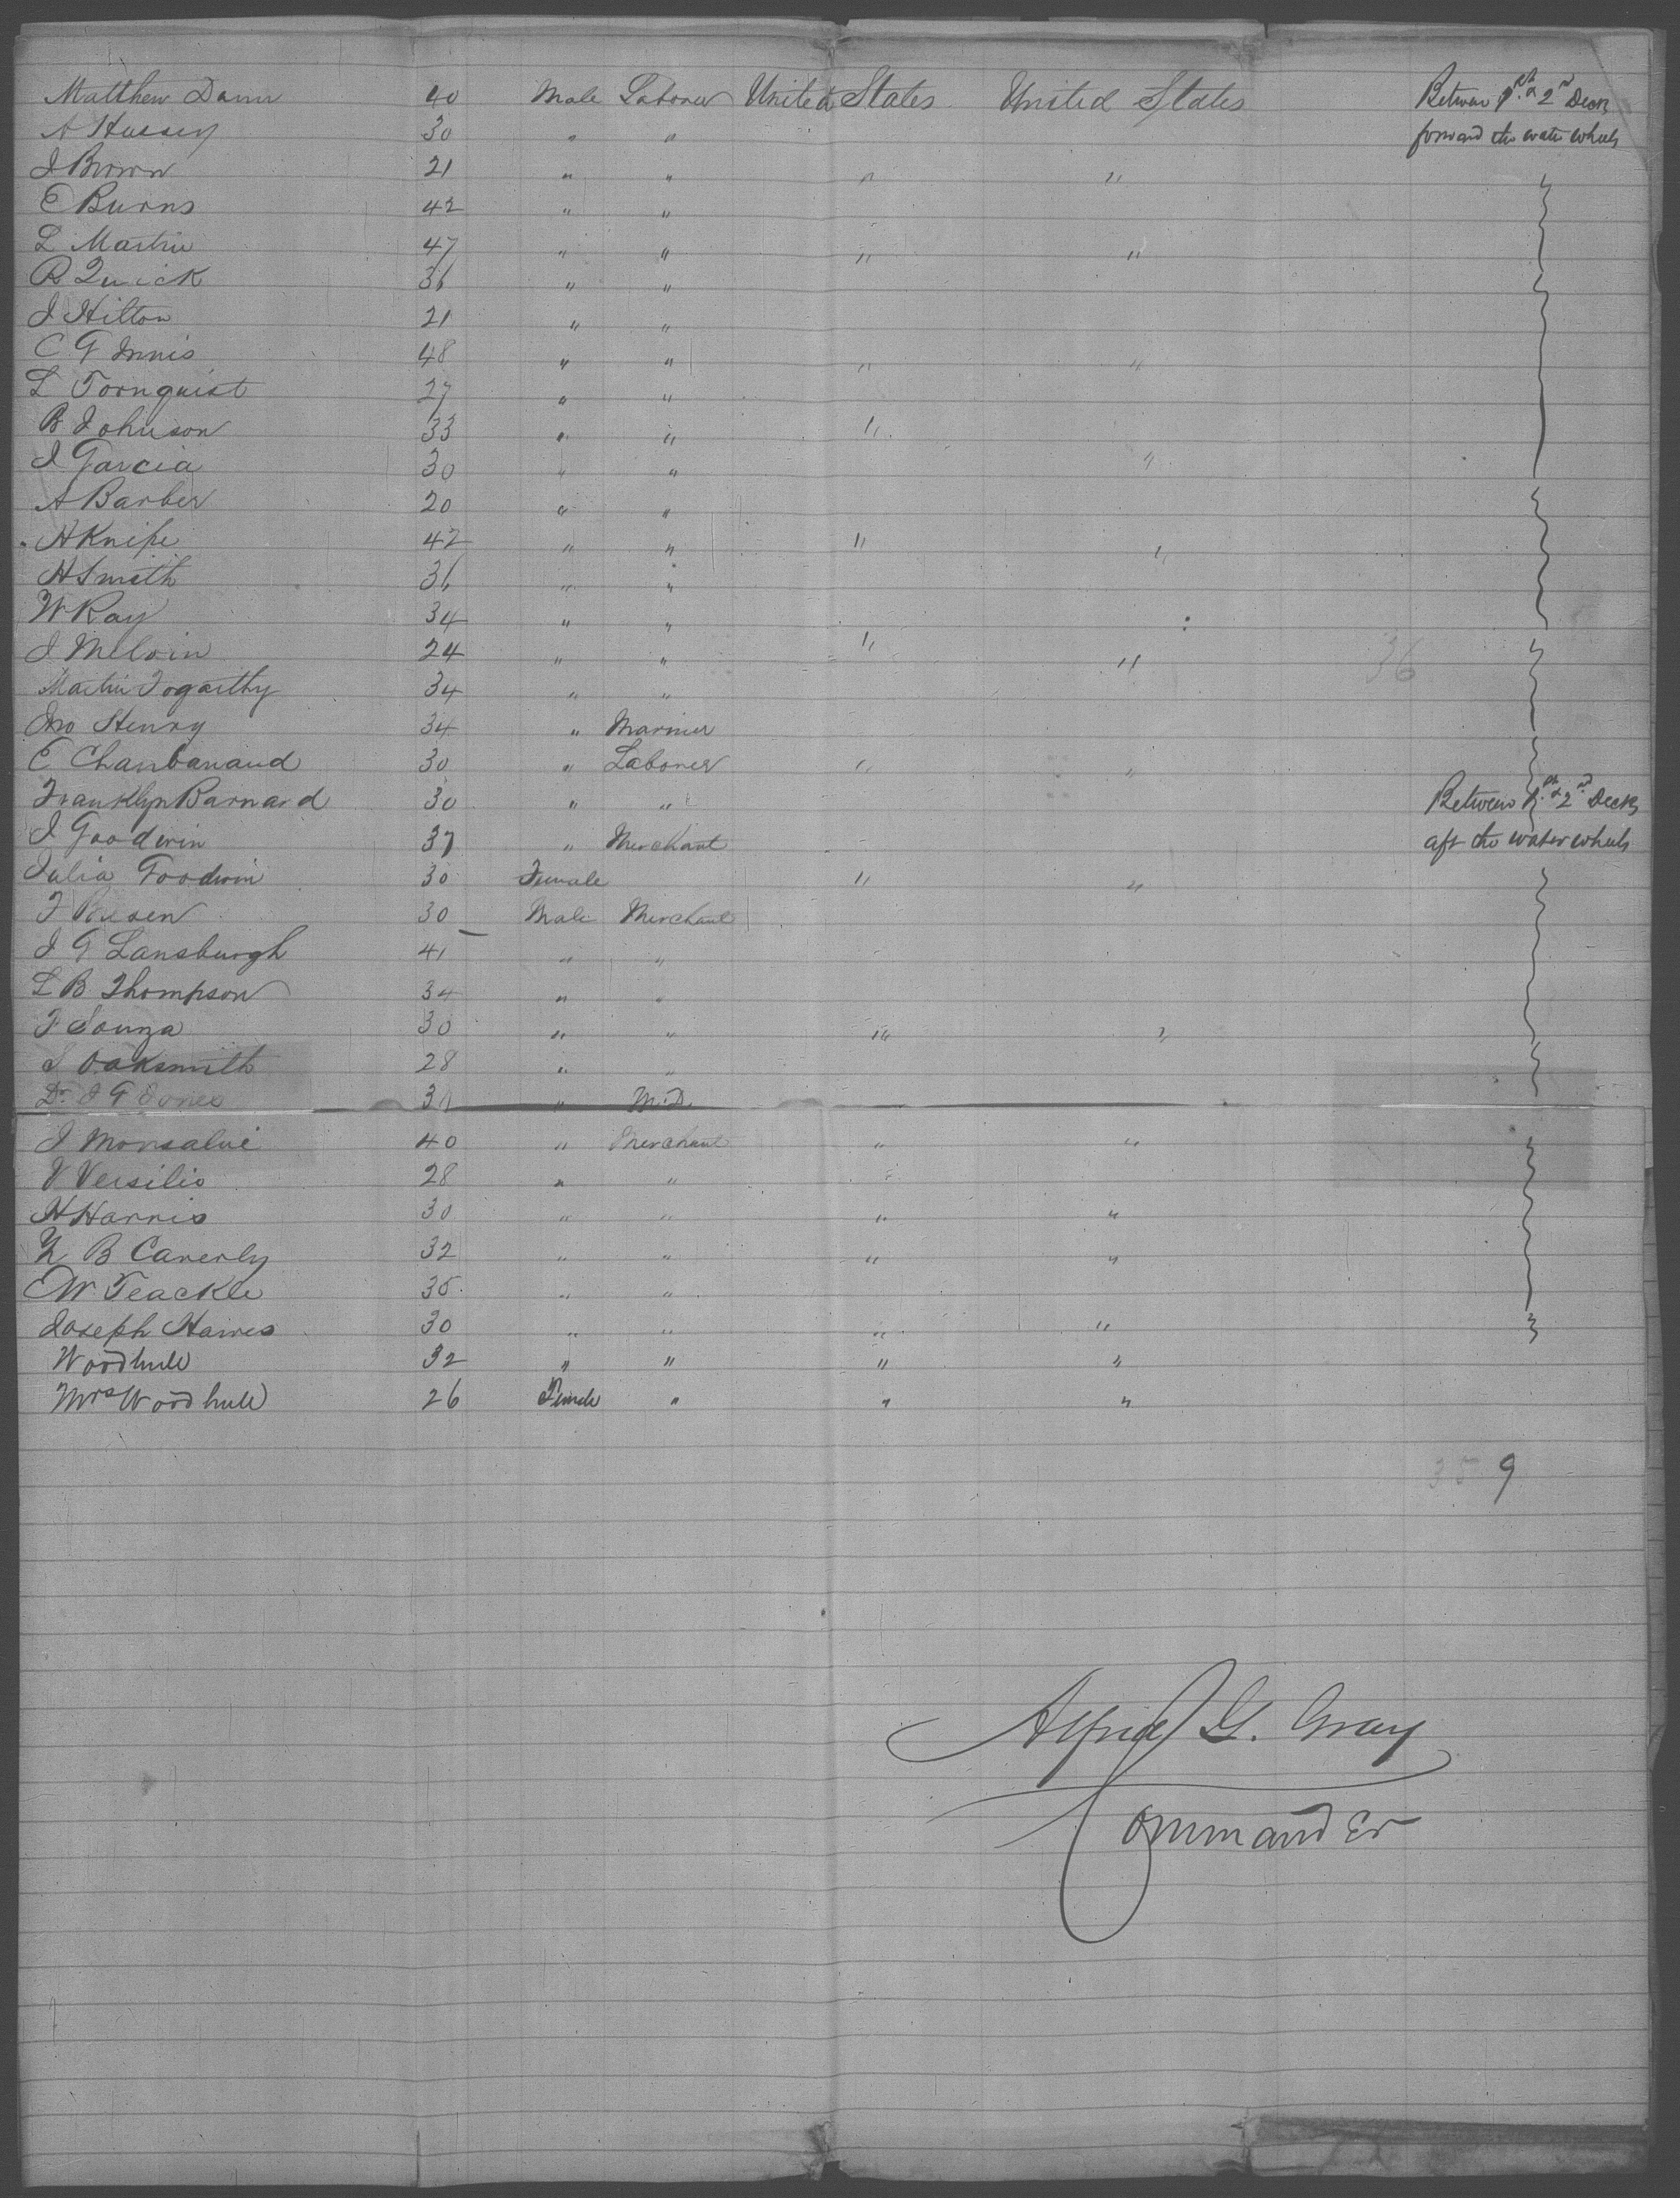 Matthew Dann 40 Male Laborer United States United States Between 1st & 2nd Deck
A Hussey 30 " " forward the water wheels
J Brown 21 " " " "
E Burns 42 " "
L Martin 47 " " " "
R Quick 36 " "
J Hilton 21 " "
C G Innis 48 " " " "
L Tornquist 27 " "
B Johnson 33 " " "
J Garcia 30 " " "
A Barber 20 " "
H Knipe 42 " " " "
H Smith 36 " "
W Ray 34 " " :
J Melvin 24 " " " " 36
Martin Fogarthy 34 " "
Jno Henry 34 " Mariner
E Chanbanaud 30 " Laborer " "
Franklyn Barnard 30 " " Between 1st & 2nd Decks
J Goodwin 37 " Merchant aft the water wheels
Julia Goodwin 30 Female " "
F 30 Male Merchant
J G Lansburgh 41 " "
L B Thompson 34 " "
F Souza 30 " " " "
S Oaksmith 28 " "
Dr J G Jones 30 " M.D.
J Monsalvé 40 " Merchant " "
V Versilio 28 " " "
H Harris 30 " " " "
Z B Caverly 32 " " " "
E W Teackle 35 " "
Joseph Hawes 30 " " " "
Woodhull 32 " " " "
Mrs Woodhull 26 Female " " "
359
Alfred G. Gray
Commander